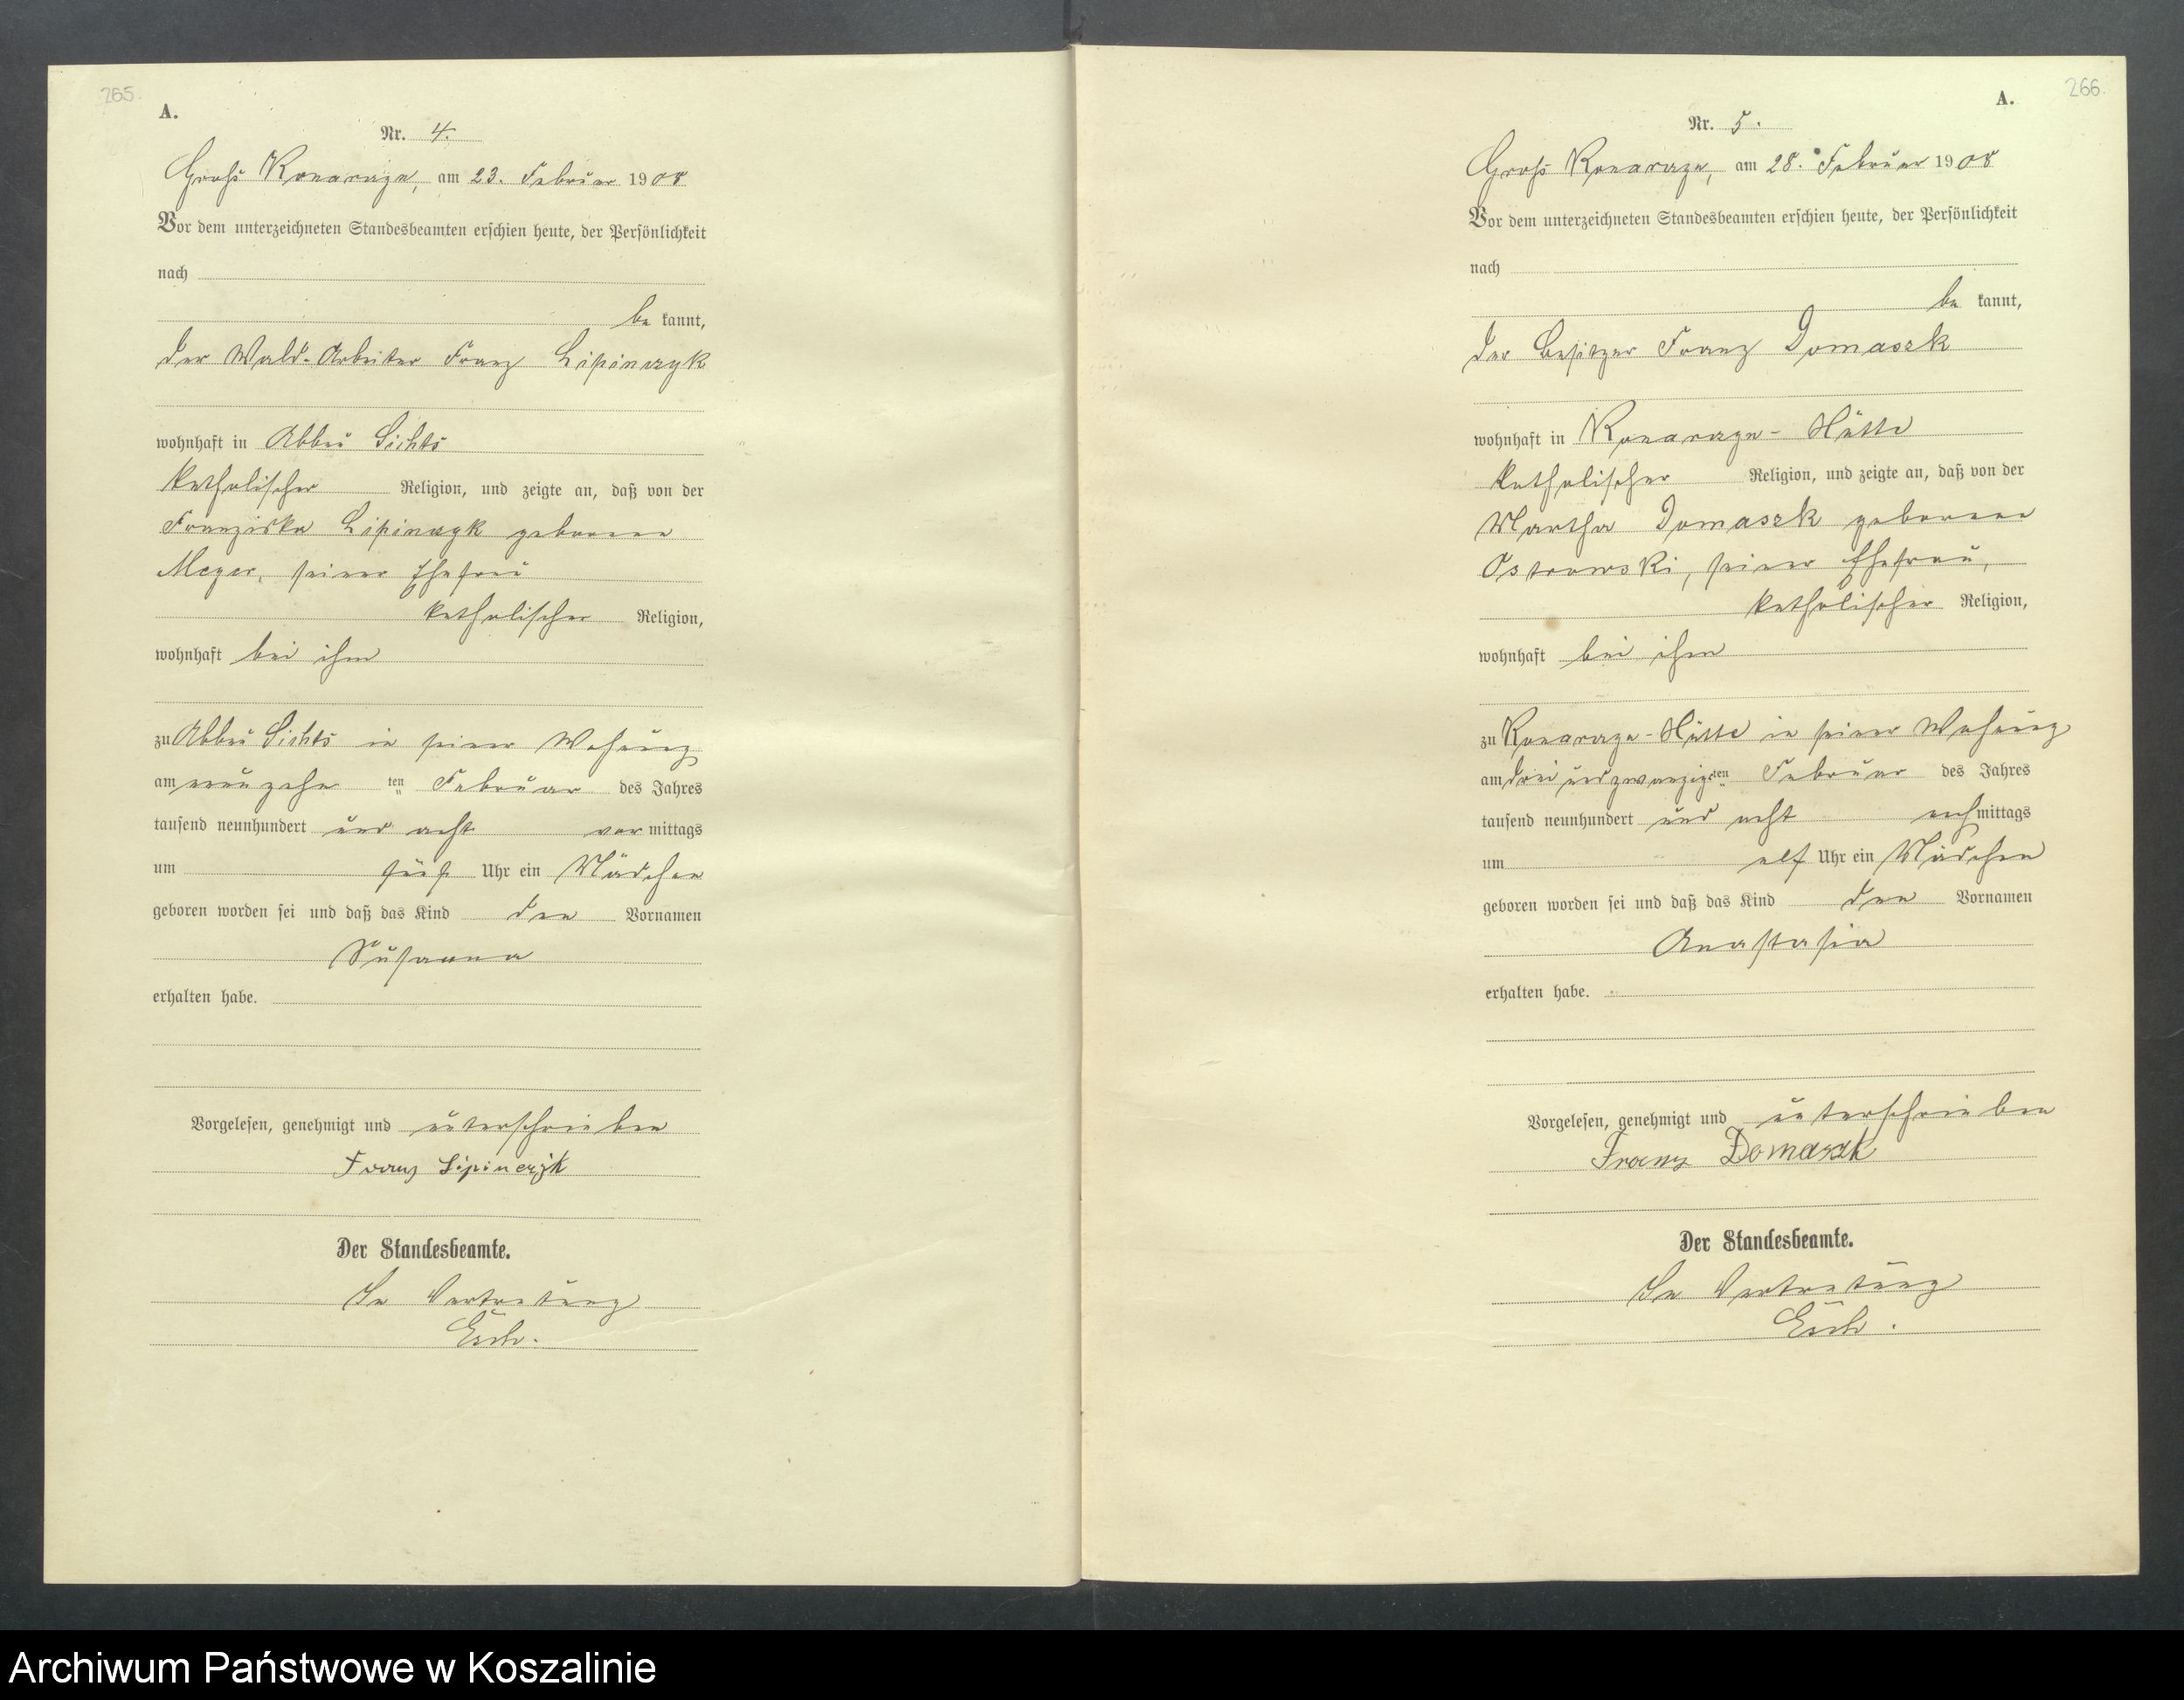 265.
A.
Nr. 4.
Groß Konarczyn, am 23. Februar 1908
Vor dem unterzeichneten Standesbeamten erschien heute, der Persönlichkeit
nach
be kannt,
der Wald-Arbeiter Franz Lipinczyk
wohnhaft in Abbau Lichts
katholischer Religion, und zeigte an, daß von der
Franziska Lipinczyk geborene
Meyer, seiner Ehefrau
katholischer Religion,
wohnhaft bei ihm
zu Abbau Lichts in seiner Wohnung
am neunzehn ten Februar des Jahres
tausend neunhundert und acht vor mittags
um fünf Uhr ein Mädchen
geboren worden sei und daß das Kind den Vornamen
Susanna
erhalten habe.
Vorgelesen, genehmigt und unterschrieben
Franz Lipinczyk
Der Standesbeamte.
In Vertretung
266.
A.
Nr. 5.
Groß Konarczyn, am 28. Februar 1908
Vor dem unterzeichneten Standesbeamten erschien heute, der Persönlichkeit
nach
be kannt,
der Besitzer Franz Domaszk
wohnhaft in Konarczyn-Hütte
katholischer Religion, und zeigte an, daß von der
Martha Domaszk geborene
Ostrowski, seiner Ehefrau,
katholischer Religion,
wohnhaft bei ihm
zu Konarczyn-Hütte in seiner Wohnung
am drei und zwanzigsten Februar des Jahres
tausend neunhundert und acht nach mittags
um elf Uhr ein Mädchen
geboren worden sei und daß das Kind den Vornamen
Anastasia
erhalten habe.
Vorgelesen, genehmigt und unterschrieben
Franz Domaszk
Der Standesbeamte.
In Vertretung
Archiwum Państwowe w Koszalinie